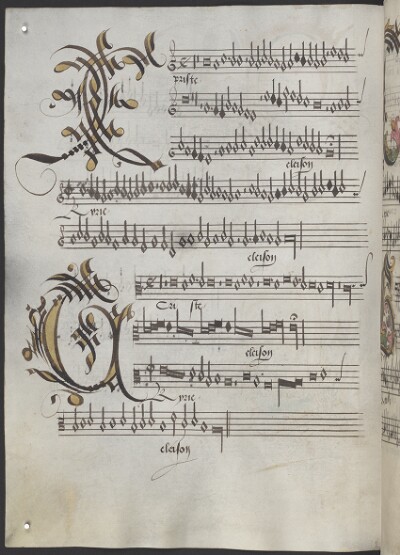 xpriste
eleison
Kyrie
eleison
Cri ste
eleison
Kyrie
eleison